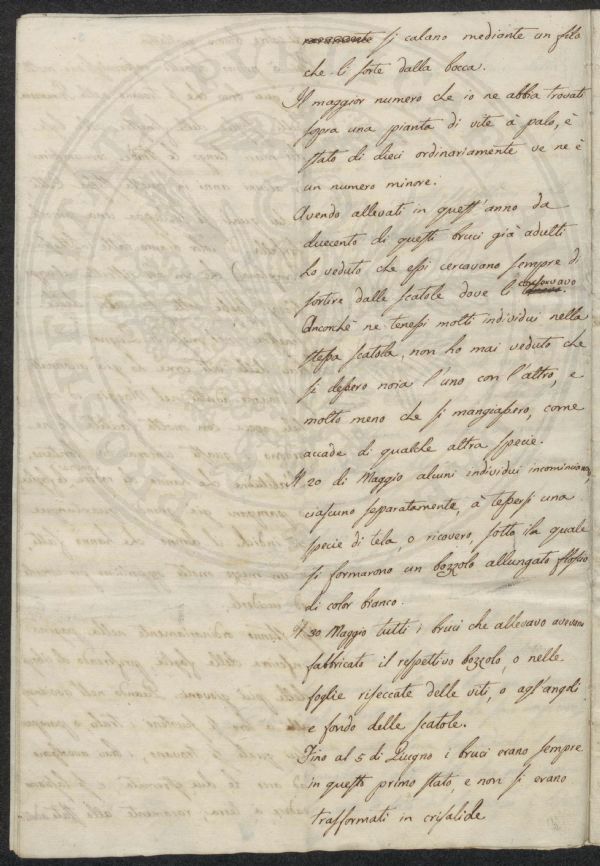 si calano mediante un filo
che li sorte dalla bocca.
Il maggior numero che io ne abbia trovati
sopra una pianta di vite à palo, è
stato di dieci ordinariamente ve ne è
un numero minore.
Avendo allevati in quest'anno da
duecento di questi bruci già adulti
ho veduto che essi cercavano sempre di
sortire dalle scatole dove li conservavo.
Ancorchè ne tenessi molti individui nella
stessa scatola, non ho mai veduto che
si dessero noia l'uno con l'altro, e
molto meno che si mangiassero, come
accade di qualche altra specie.
Il 20 di Maggio alcuni individui incominciarono,
ciascuno separatamente, à tessersi una
specie di tela, o ricovero, sotto ila quale
si formarono un bozzolo allungato floscio
di color bianco.
Il 30 Maggio tutti i bruci che allevavo avevano
fabbricato il respettivo bozzolo, o nelle
foglie riseccate delle viti, o agl'angoli
e fondo delle scatole.
Fino al 5 di Giugno i bruci erano sempre
in questo primo stato, e non si erano
trasformati in crisalide